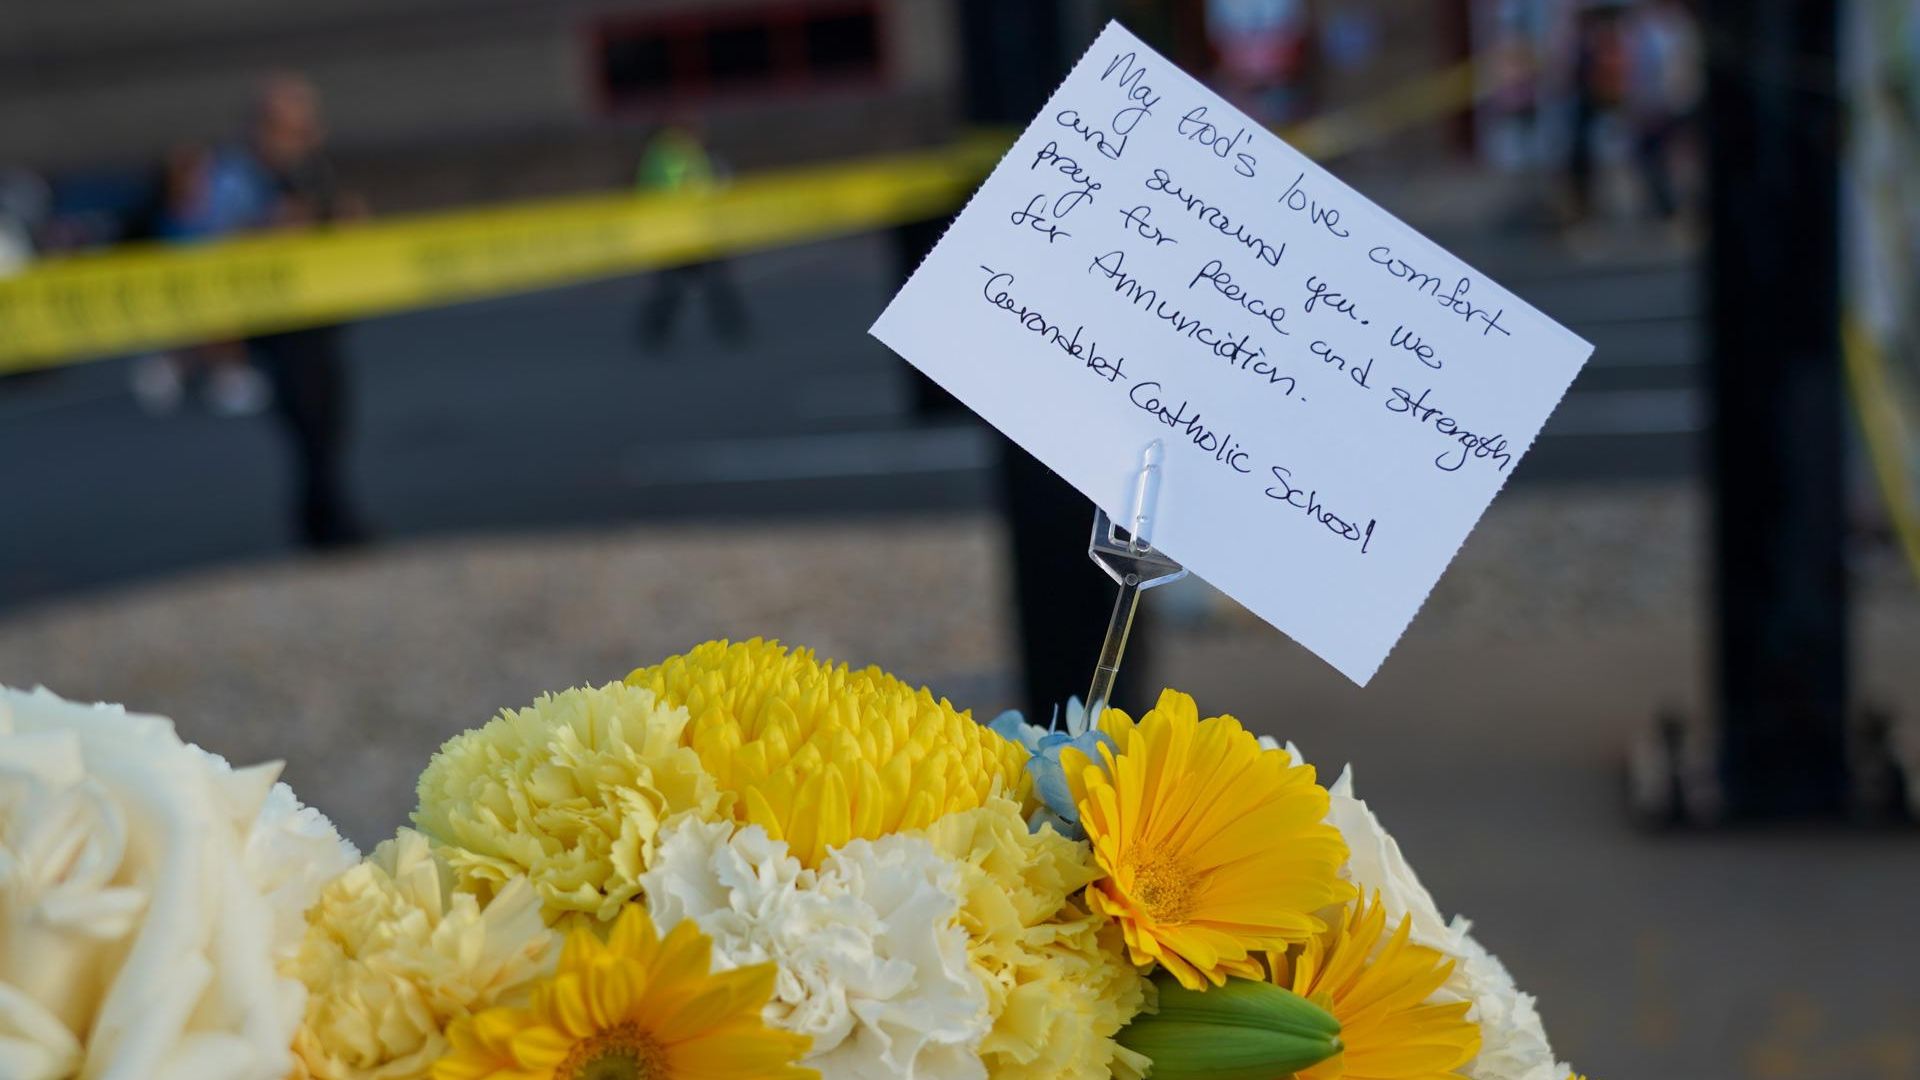 May God's love comfort
and surround you. We
pray for peace and strength
for Annunciation.
-Carondelet Catholic School